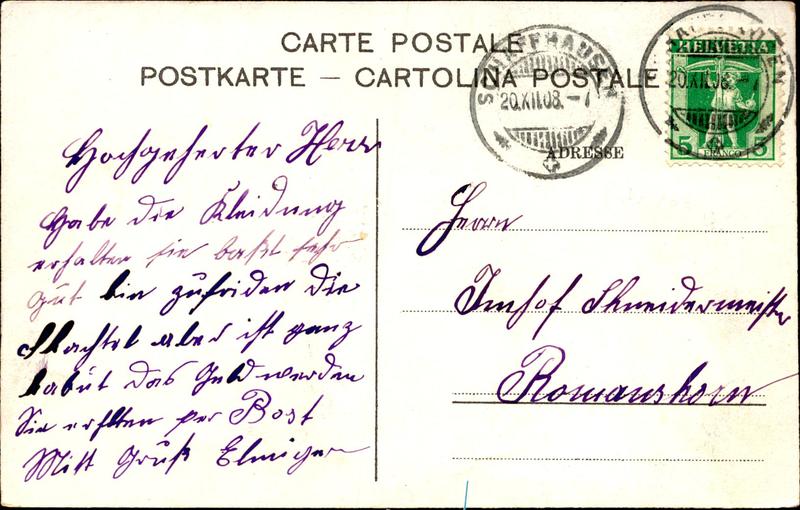 CARTE POSTALE
POSTKARTE – CARTOLINA POSTALE
SCHAFFHAUSEN
20.XII.08.–7
SCHAFFHAUSEN
20.XII.08.–7
HELVETIA
5 FRANCO 5
ADRESSE
Hochgeherter Herr
Habe die Kleidung
erhalten sie baßt sehr
gut bin zufriden die
Schachtel aber ist ganz
kabut das Geld werden
Sie erhlten per Post
Mitt Gruß Elmiger
Herrn
Imhof Schneidermeister
Romanshorn